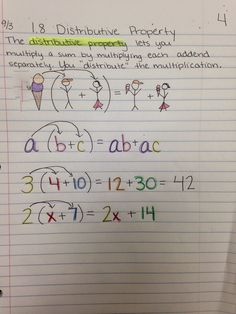 4
9/3 1.8 Distributive Property
The distributive property lets you
multiply a sum by multiplying each addend
separately. You "distribute" the multiplication.
( + ) = +
a (b+c) = ab+ac
3 (4+10) = 12+30 = 42
2 (x+7) = 2x + 14